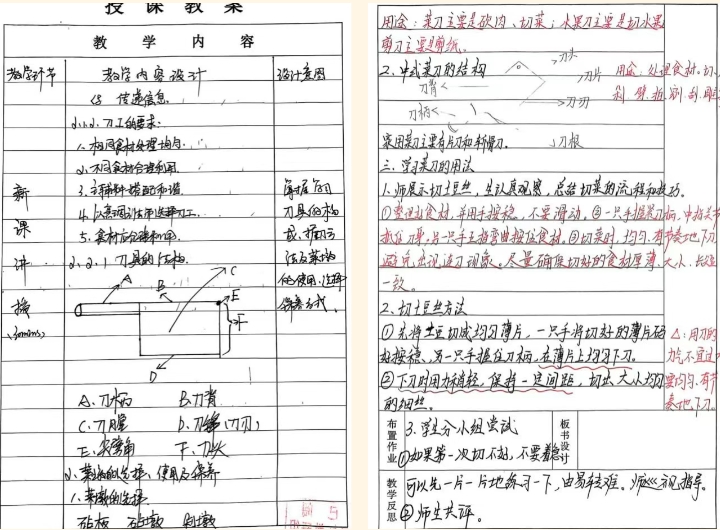 授课教案
教学内容
教学环节 教学内容设计 设计意图
传递信息
2.1.2.刀工的要求:
1.相同食材处理均匀.
2.不同食材合理利用.
3.主辅料搭配和谐.
5.食材应合理利用.
2.2.1 刀具的结构.
新课讲授
(30mins)
掌握不同
刀具的构
成、握刀方
法及菜墩
的使用、选择
保养方式.
A
B
C
E
F
D
A.刀柄 B.刀背
C.刀膛 D.刀锋(刀刃)
E.尖弯角 F.刀头
2.菜墩的选择、使用及保养
1.菜墩的选择
用途:菜刀主要是砍肉、切菜;水果刀主要是切水果
剪刀主要是剪纸。
2.中式菜刀的结构
刀头
刀片
刀背
刀刃
刀柄
刀根
用途:处理食材。切、
剁、劈、拍、剐、刮、雕
家用菜刀主要有片刀和斩骨刀。
三、学习菜刀的用法
1.师展示切土豆丝,生认真观察,总结切菜的流程和技巧。
①整理好食材,并用手按稳,不要滑动。②一只手握菜刀柄,中指关节
抵住刀草,另一只手五指弯曲按住食材。③切菜时,均匀、有节奏地下刀
避免出现连刀现象。尽量确保切好的食材厚薄、大小、长短
一致。
2.切土豆丝方法
①先将土豆切成均匀薄片,一只手将切好的薄片码
好按稳,另一只手握住刀柄,在薄片上均匀下刀。
②下刀时用力稍轻,保持一定间距,切出大小均匀
的细丝。
△:用刀的
力气不宜过大
要均匀、有节
奏地下刀。
布置作业
3.学生分小组尝试
①如果第一次切不好,不要着急
板书设计
教学反思
可以先一片一片地练习一下,由易转难。师巡视指导。
②师生共评。